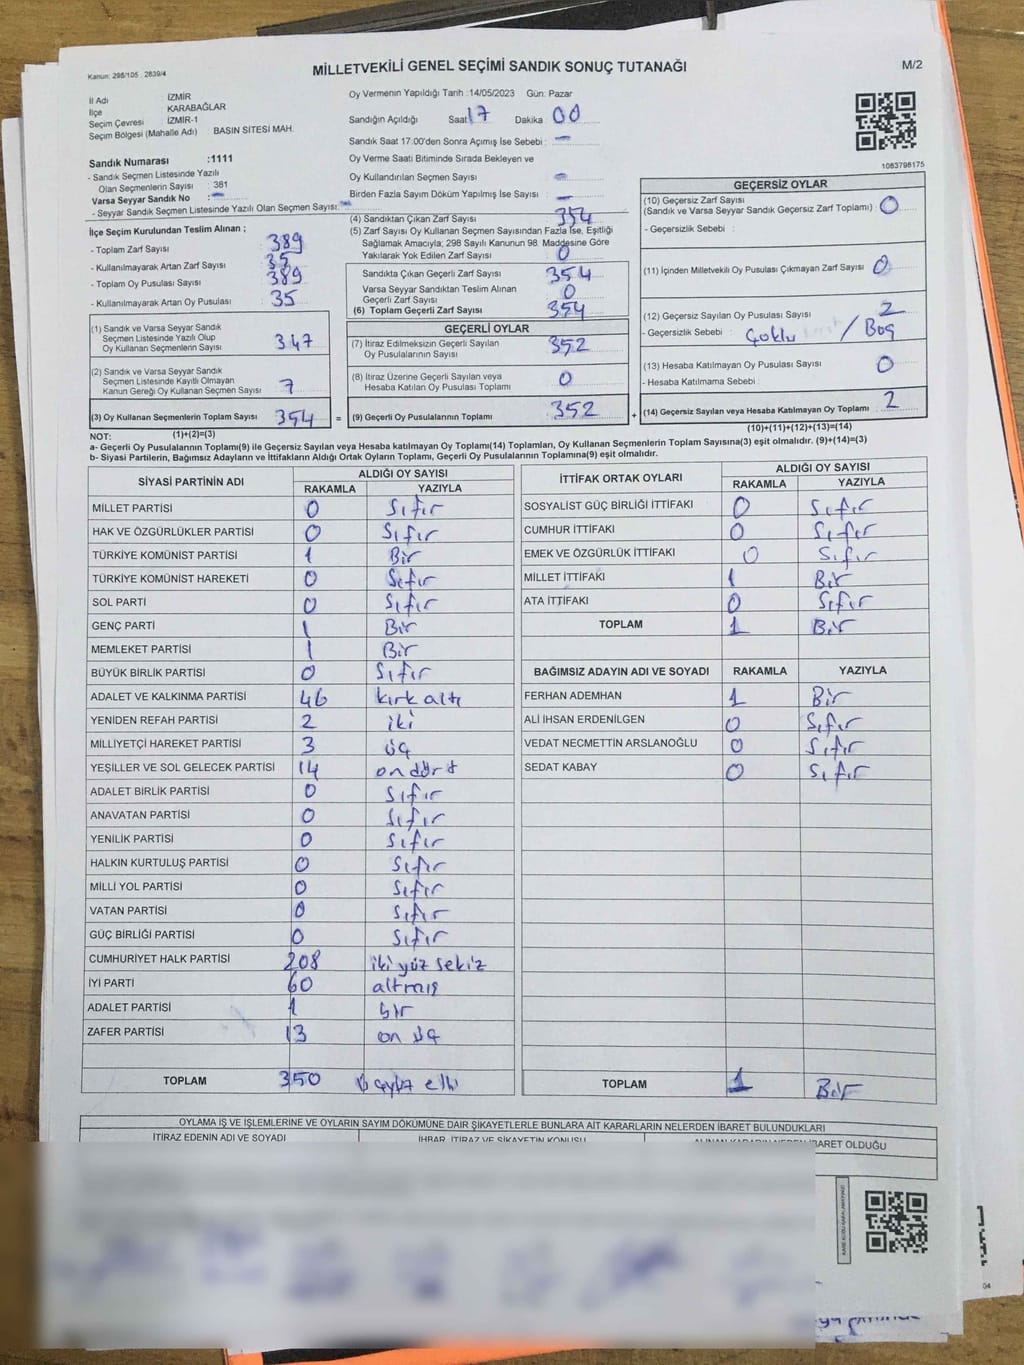 Kanun: 298/105 . 2839/4
MİLLETVEKİLİ GENEL SEÇİMİ SANDIK SONUÇ TUTANAĞI
M/2
İl Adı : İZMİR
İlçe : KARABAĞLAR
Seçim Çevresi : İZMİR-1
Seçim Bölgesi (Mahalle Adı) BASIN SİTESİ MAH.
Sandık Numarası :1111
- Sandık Seçmen Listesinde Yazılı
Olan Seçmenlerin Sayısı : 381
Varsa Seyyar Sandık No : -
- Seyyar Sandık Seçmen Listesinde Yazılı Olan Seçmen Sayısı: -
İlçe Seçim Kurulundan Teslim Alınan ;
- Toplam Zarf Sayısı : 389
- Kullanılmayarak Artan Zarf Sayısı : 35
- Toplam Oy Pusulası Sayısı : 389
- Kullanılmayarak Artan Oy Pusulası : 35
(1) Sandık ve Varsa Seyyar Sandık
Seçmen Listesinde Yazılı Olup
Oy Kullanan Seçmenlerin Sayısı : 347
(2) Sandık ve Varsa Seyyar Sandık
Seçmen Listesinde Kayıtlı Olmayan
Kanun Gereği Oy Kullanan Seçmen Sayısı : 7
(3) Oy Kullanan Seçmenlerin Toplam Sayısı : 354 =
(1)+(2)=(3)
Oy Vermenin Yapıldığı Tarih :14/05/2023 Gün: Pazar
Sandığın Açıldığı Saat 17 Dakika 00
Sandık Saat 17:00'den Sonra Açımış İse Sebebi : -
Oy Verme Saati Bitiminde Sırada Bekleyen ve
Oy Kullandırılan Seçmen Sayısı : -
Birden Fazla Sayım Döküm Yapılmış İse Sayısı : -
(4) Sandıktan Çıkan Zarf Sayısı : 354
(5) Zarf Sayısı Oy Kullanan Seçmen Sayısından Fazla İse, Eşitliği
Sağlamak Amacıyla; 298 Sayılı Kanunun 98. Maddesine Göre
Yakılarak Yok Edilen Zarf Sayısı : 0
Sandıkta Çıkan Geçerli Zarf Sayısı : 354
Varsa Seyyar Sandıktan Teslim Alınan
Geçerli Zarf Sayısı : 0
(6) Toplam Geçerli Zarf Sayısı : 354
GEÇERLİ OYLAR
(7) İtiraz Edilmeksizin Geçerli Sayılan
Oy Pusulalarının Sayısı : 352
(8) İtiraz Üzerine Geçerli Sayılan veya
Hesaba Katılan Oy Pusulası Toplamı : 0
(9) Geçerli Oy Pusulalarının Toplamı : 352 +
1083798175
GEÇERSİZ OYLAR
(10) Geçersiz Zarf Sayısı
(Sandık ve Varsa Seyyar Sandık Geçersiz Zarf Toplamı) : 0
- Geçersizlik Sebebi :
(11) İçinden Milletvekili Oy Pusulası Çıkmayan Zarf Sayısı : 0
(12) Geçersiz Sayılan Oy Pusulası Sayısı : 2
- Geçersizlik Sebebi : Çoklu / Boş
(13) Hesaba Katılmayan Oy Pusulası Sayısı : 0
- Hesaba Katılmama Sebebi :
(14) Geçersiz Sayılan veya Hesaba Katılmayan Oy Toplamı : 2
(10)+(11)+(12)+(13)=(14)
NOT:
a- Geçerli Oy Pusulalarının Toplamı(9) ile Geçersiz Sayılan veya Hesaba katılmayan Oy Toplamı(14) Toplamları, Oy Kullanan Seçmenlerin Toplam Sayısına(3) eşit olmalıdır. (9)+(14)=(3)
b- Siyasi Partilerin, Bağımsız Adayların ve İttifakların Aldığı Ortak Oyların Toplamı, Geçerli Oy Pusulalarının Toplamına(9) eşit olmalıdır.
SİYASİ PARTİNİN ADI ALDIĞI OY SAYISI
RAKAMLA YAZIYLA
MİLLET PARTİSİ 0 Sıfır
HAK VE ÖZGÜRLÜKLER PARTİSİ 0 Sıfır
TÜRKİYE KOMÜNİST PARTİSİ 1 Bir
TÜRKİYE KOMÜNİST HAREKETİ 0 Sıfır
SOL PARTİ 0 Sıfır
GENÇ PARTİ 1 Bir
MEMLEKET PARTİSİ 1 Bir
BÜYÜK BİRLİK PARTİSİ 0 Sıfır
ADALET VE KALKINMA PARTİSİ 46 kırk altı
YENİDEN REFAH PARTİSİ 2 iki
MİLLİYETÇİ HAREKET PARTİSİ 3 üç
YEŞİLLER VE SOL GELECEK PARTİSİ 14 on dört
ADALET BİRLİK PARTİSİ 0 Sıfır
ANAVATAN PARTİSİ 0 Sıfır
YENİLİK PARTİSİ 0 Sıfır
HALKIN KURTULUŞ PARTİSİ 0 Sıfır
MİLLİ YOL PARTİSİ 0 Sıfır
VATAN PARTİSİ 0 Sıfır
GÜÇ BİRLİĞİ PARTİSİ 0 Sıfır
CUMHURİYET HALK PARTİSİ 208 iki yüz sekiz
İYİ PARTİ 60 altmış
ADALET PARTİSİ 1 bir
ZAFER PARTİSİ 13 on üç
TOPLAM 350
İTTİFAK ORTAK OYLARI ALDIĞI OY SAYISI
RAKAMLA YAZIYLA
SOSYALİST GÜÇ BİRLİĞİ İTTİFAKI 0 Sıfır
CUMHUR İTTİFAKI 0 Sıfır
EMEK VE ÖZGÜRLÜK İTTİFAKI 0 Sıfır
MİLLET İTTİFAKI 1 Bir
ATA İTTİFAKI 0 Sıfır
TOPLAM 1 Bir
BAĞIMSIZ ADAYIN ADI VE SOYADI RAKAMLA YAZIYLA
FERHAN ADEMHAN 1 Bir
ALİ İHSAN ERDENİLGEN 0 Sıfır
VEDAT NECMETTİN ARSLANOĞLU 0 Sıfır
SEDAT KABAY 0 Sıfır
TOPLAM 1 Bir
OYLAMA İŞ VE İŞLEMLERİNE VE OYLARIN SAYIM DÖKÜMÜNE DAİR ŞİKAYETLERLE BUNLARA AİT KARARLARIN NELERDEN İBARET BULUNDUKLARI
İTİRAZ EDENİN ADI VE SOYADI İHBAR, İTİRAZ VE ŞİKAYETİN KONUSU ALINAN KARARIN NEDEN İBARET OLDUĞU